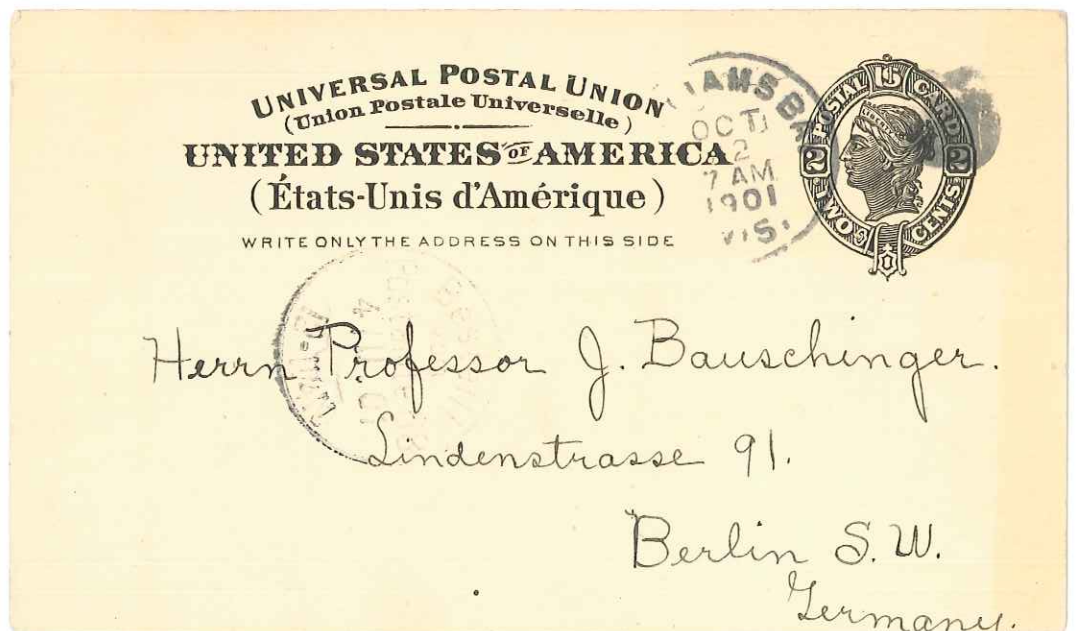 UNIVERSAL POSTAL UNION
(Union Postale Universelle)
UNITED STATES OF AMERICA
(États-Unis d'Amérique)
WRITE ONLY THE ADDRESS ON THIS SIDE
OCT
2
7 AM
1901
WIS.
POSTAL CARD
LIBERTY
2 2
TWO CENTS
Herrn Professor J. Bauschinger.
Lindenstrasse 91.
Berlin S.W.
Germany.